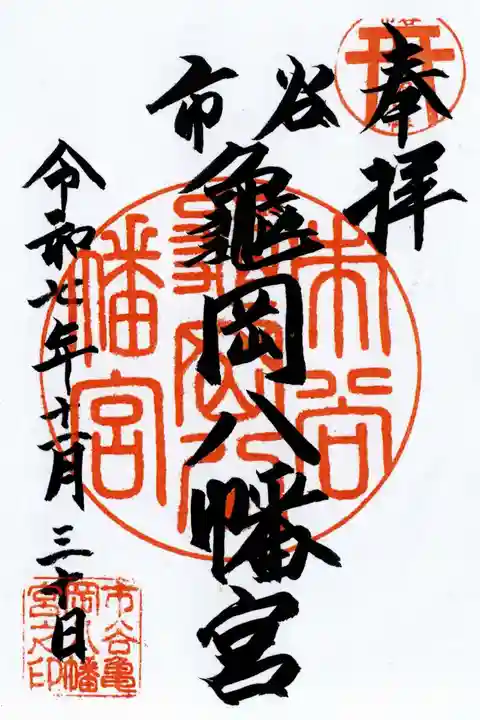 奉拝
市谷
龜岡八幡宮
令和七年十一月三十日
市谷
龜岡八
幡宮
市谷亀
岡八幡
宮之印